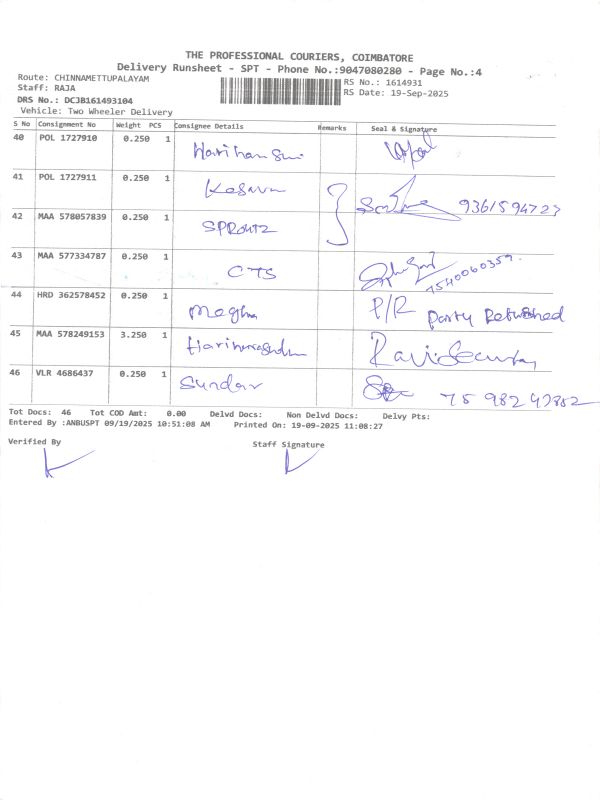 THE PROFESSIONAL COURIERS, COIMBATORE
Delivery Runsheet - SPT - Phone No.:9047080280 - Page No.:4
Route: CHINNAMETTUPALAYAM RS No.: 1614931
Staff: RAJA RS Date: 19-Sep-2025
DRS No.: DCJB161493104
Vehicle: Two Wheeler Delivery
S No Consignment No Weight PCS Consignee Details Remarks Seal & Signature
40 POL 1727910 0.250 1
41 POL 1727911 0.250 1 Kesavan 9361594727
42 MAA 578057839 0.250 1 SPROUTZ
43 MAA 577334787 0.250 1 CTS 7540060359.
44 HRD 362578452 0.250 1 Megha P/R Party Refushed
45 MAA 578249153 3.250 1 Ravi Security
46 VLR 4686437 0.250 1 Sundar
Tot Docs: 46 Tot COD Amt: 0.00 Delvd Docs: Non Delvd Docs: Delvy Pts:
Entered By :ANBUSPT 09/19/2025 10:51:08 AM Printed On: 19-09-2025 11:08:27
Verified By Staff Signature